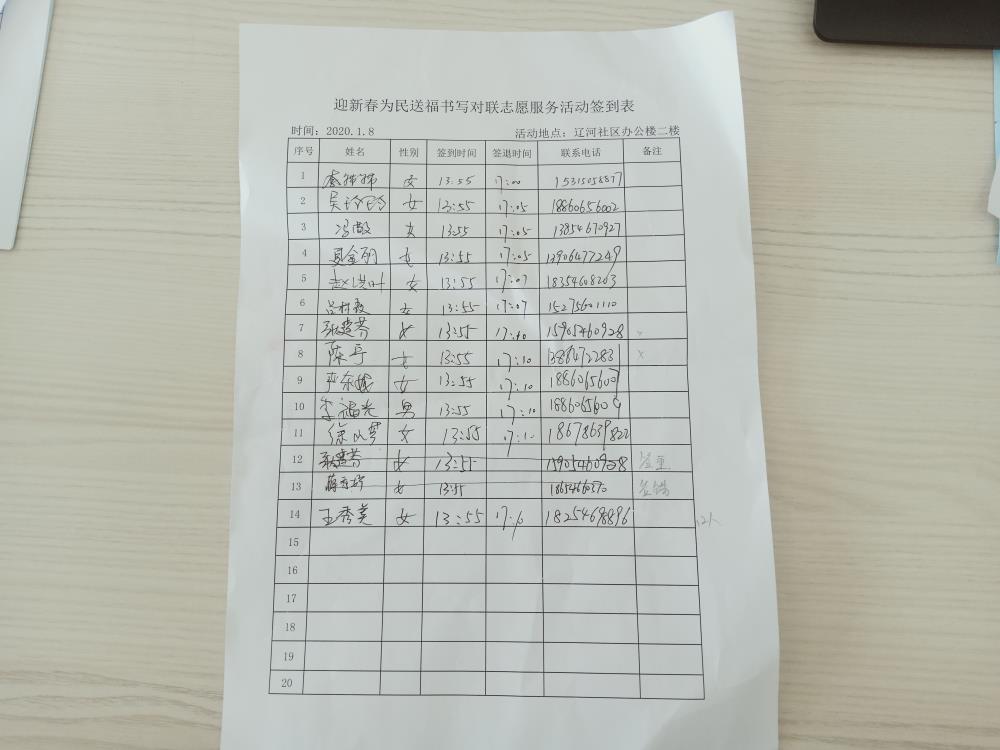 迎新春为民送福书写对联志愿服务活动签到表
时间：2020.1.8 活动地点：辽河社区办公楼二楼
序号 姓名 性别 签到时间 签退时间 联系电话 备注
1 女 13:55 17:00 15315058877
2 吴玲玲 女 13:55 17:05 18860656002
3 冯敏 女 13:55 17:05 13854670927
4 夏金羽 女 13:55 17:05 13906477249
5 赵洪叶 女 13:55 17:07 18354608263
6 女 13:55 17:07 15275601110
7 张建芬 女 13:55 17:10 15905460928 ×
8 陈亭 女 13:55 17:10 ×
9 女 13:55 17:10 18860656007
10 李福光 男 13:55 17:10 18860656009
11 徐 女 13:55 17:10 18678639822
12 张建芬 女 13:55 15905460928 签重
13 女 13:55 签错
14 王秀英 女 13:55 18254698896 12人
15
16
17
18
19
20